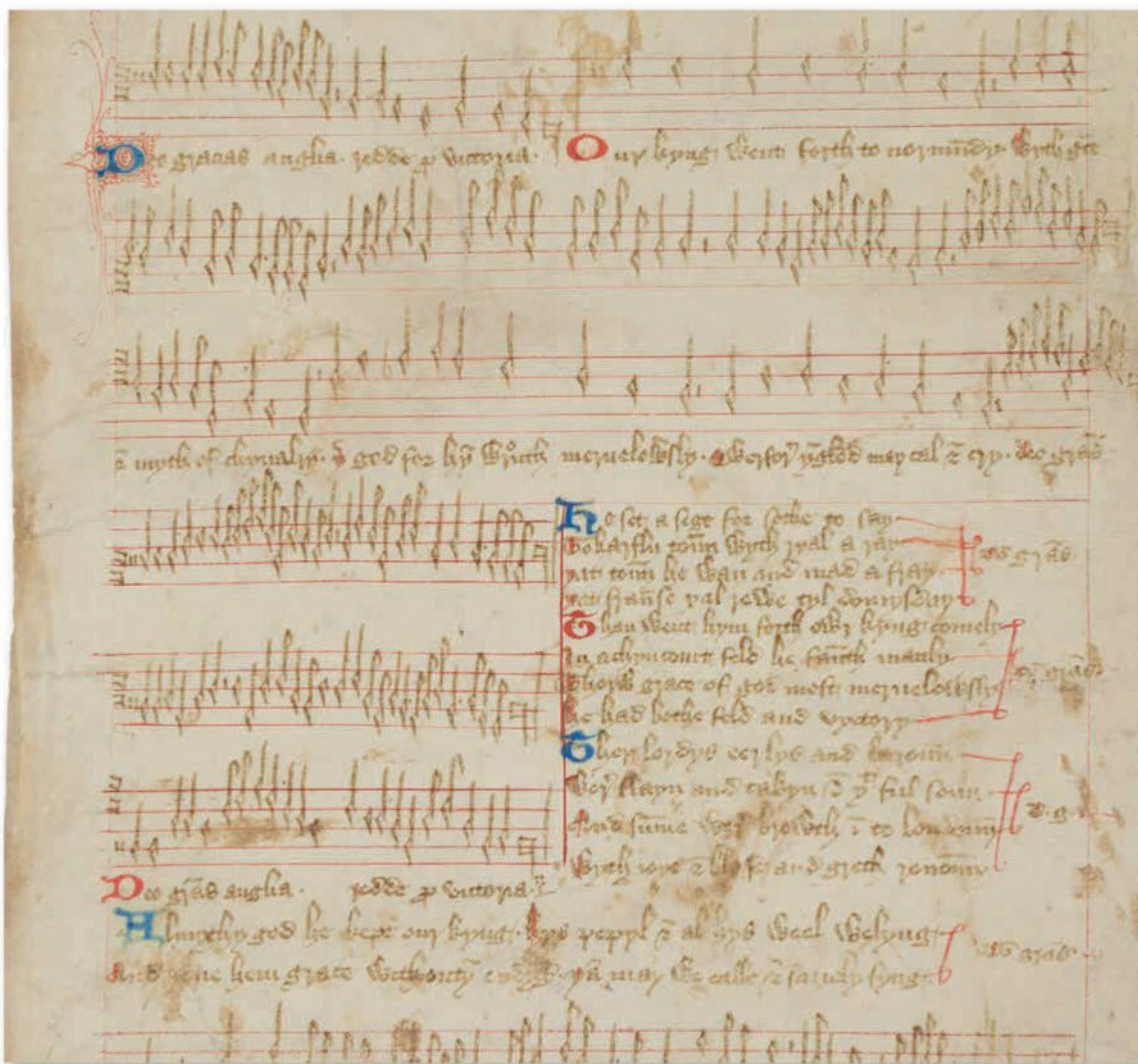 Deo gracias anglia · redde p victoria · Our kyng went forth to normãdy · Wyth gce
& myth of chyvalry · god for hỹ wrouth mervelowsly · Qwerfor ynglõd may cal & cry · Deo grãs
He set a sege for sothe to say
To harflu toũn wyth ryal a ray
yat toũn he wan and mad a fray
yat fraũse xal rewe tyl domysday
deo grãs
Than went hym forth owr kyng comely
In achyncourt feld he fauth manly
Thorw grace of god most mervelowsly
he had bothe feld and vyctory
deo grãs
Ther lordys eerlys and baroũn
wer slayn and takyn & yᵗ ful soun
And sũme wer browth ĩ to londoũn
Wyth ioye & blysse and gret renoũn
d . g .
Deo grãs anglia · redde p victoria
Almythy god he kepe our kyng · hys pepyl & al hys weel welyng
And yeve hem grace withoutỹ endyng · yã may we calle & savely syng
deo grãs